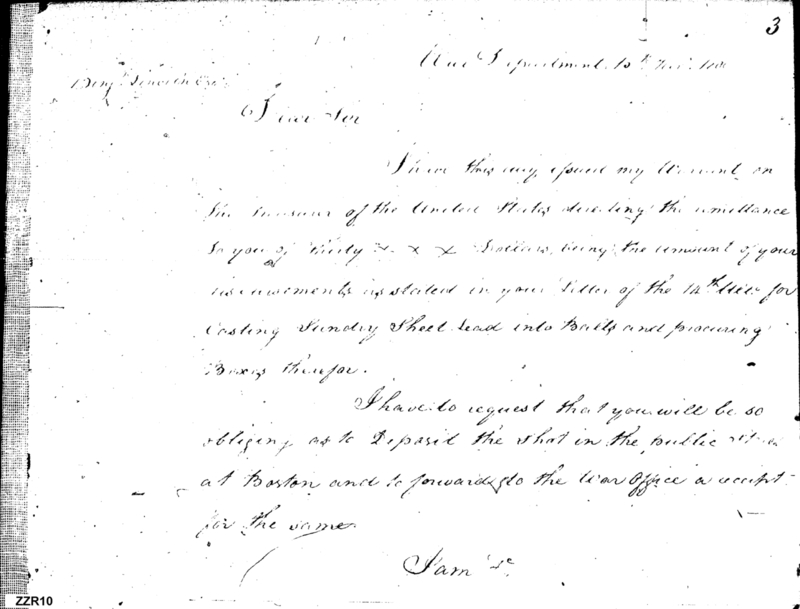 3
War Department 15th Decr. 1800
Benjn. Lincoln Esqr.
Dear Sir
I have this day issued my Warrant on
the Treasurer of the United States directing the remittance
to you of thirty x x x Dollars, being the amount of your
disbursements as stated in your Letter of the 14th for
Casting Sundry Sheet Lead into Balls and procuring
Boxes therefor.
I have to request that you will be so
obliging as to Deposit the Shot in the public
at Boston and to forward to the War Office a receipt
for the same.
I am &c
ZZR10